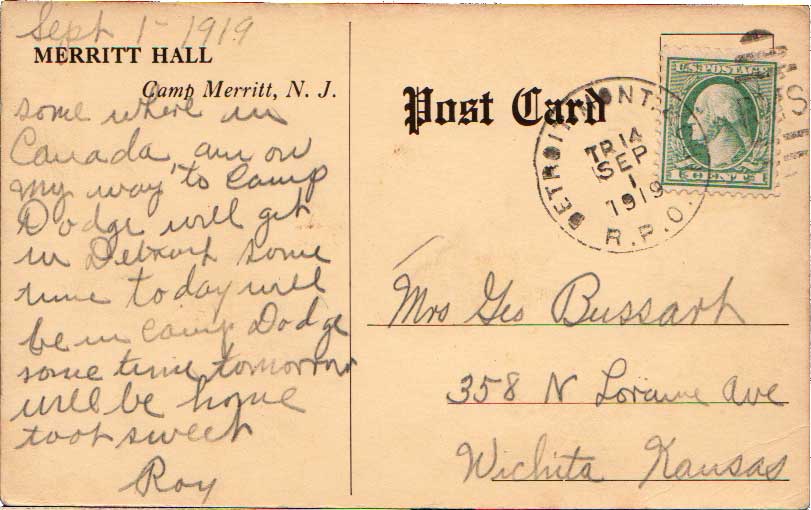 Sept 1 - 1919
MERRITT HALL
Camp Merritt, N. J.
some where in
Canada am on
my way to Camp
Dodge will get
in Detroit some
time today will
be in Camp Dodge
some time tomorrow
will be home
toot sweet
Roy
Post Card
U.S. POSTAGE
1 CENT 1
DETROIT R.P.O.
TR 14
SEP
1
1919
Mrs Geo Bussart
358 N Loraine Ave
Wichita Kansas